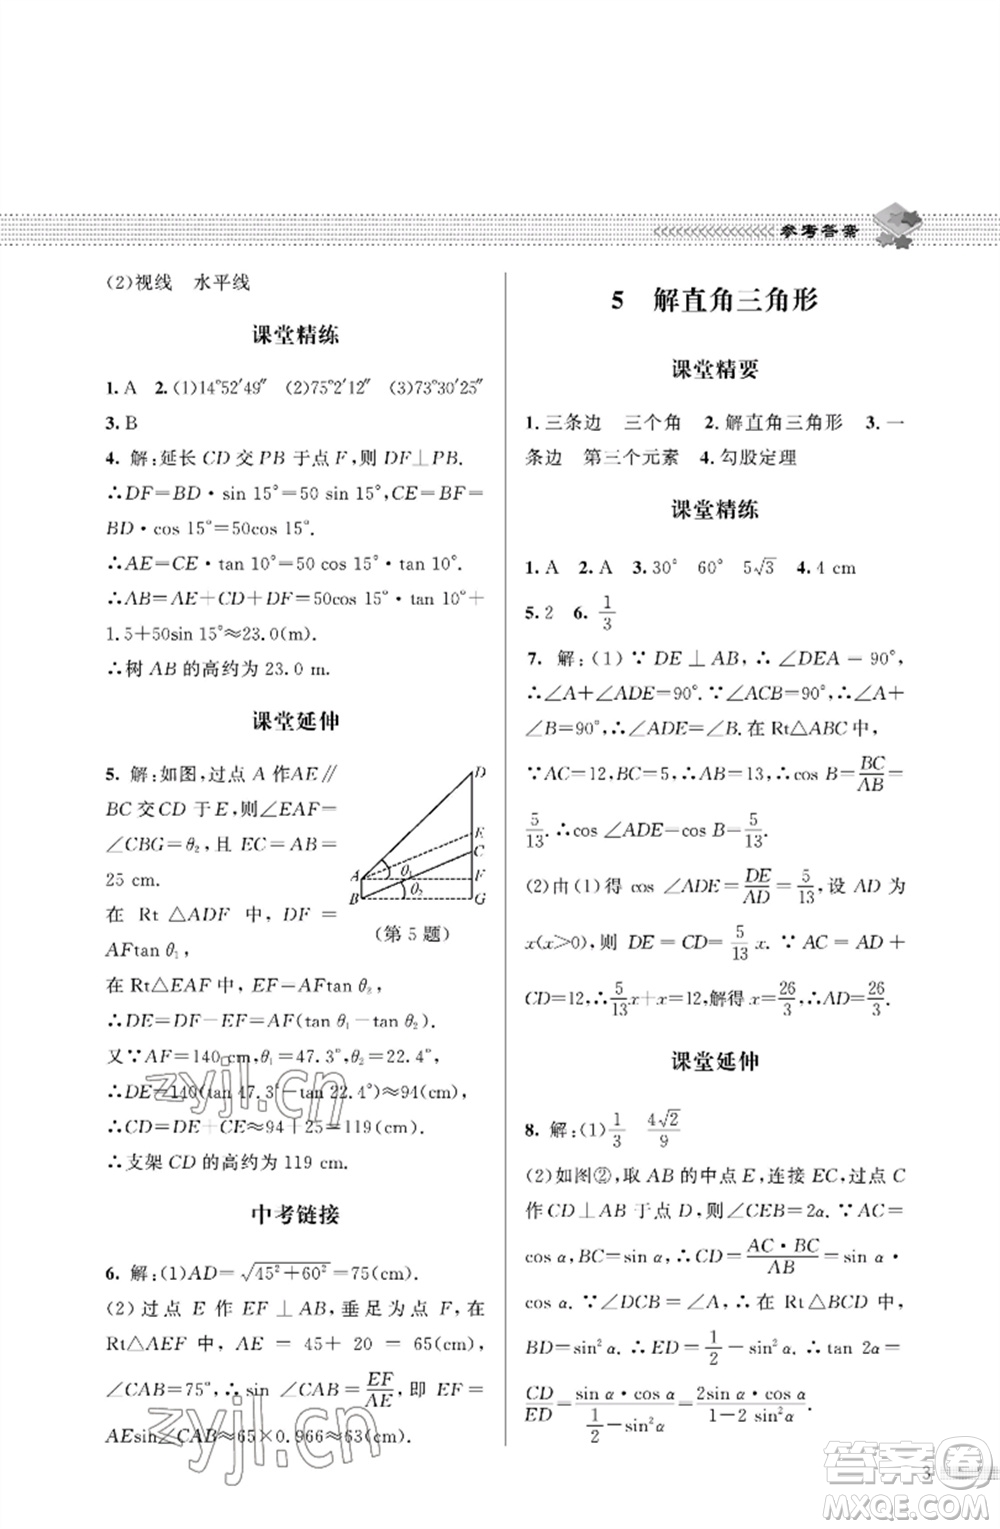 参考答案
(2)视线　水平线
课堂精练
1. A　2. (1)14°52′49″　(2)75°2′12″　(3)73°30′25″
3. B
4. 解:延长 CD 交 PB 于点 F,则 DF⊥PB.
∴DF=BD·sin 15°=50sin 15°,CE=BF=
BD·cos 15°=50cos 15°.
∴AE=CE·tan 10°=50cos 15°·tan 10°.
∴AB=AE+CD+DF=50cos 15°·tan 10°+
1.5+50sin 15°≈23.0(m).
∴树 AB 的高约为 23.0 m.
课堂延伸
5. 解:如图,过点 A 作AE∥
BC交CD于E,则∠EAF=
∠CBG=θ₂,且 EC=AB=
25 cm.
在 Rt△ADF 中, DF=
AFtan θ₁,
在 Rt△EAF 中,EF=AFtan θ₂,
∴DE=DF-EF=AF(tan θ₁-tan θ₂).
又∵AF=140 cm,θ₁=47.3°,θ₂=22.4°,
∴DE=140(tan 47.3°-tan 22.4°)≈94(cm).
∴CD=DE+CE≈94+25=119(cm).
∴支架 CD 的高约为 119 cm.
D
E
C
A θ₁ F
B θ₂ G
(第 5 题)
中考链接
6. 解:(1)AD=√(45²+60²)=75(cm).
(2)过点 E 作 EF⊥AB,垂足为点 F,在
Rt△AEF 中, AE=45+20=65(cm),
∠CAB=75°,∴sin ∠CAB=EF/AE,即 EF=
AEsin∠CAB≈65×0.966≈63(cm).
5　解直角三角形
课堂精要
1. 三条边　三个角　2. 解直角三角形　3. 一
条边　第三个元素　4. 勾股定理
课堂精练
1. A　2. A　3. 30°　60°　5√3　4. 4 cm
5. 2　6. 1/3
7. 解:(1)∵DE⊥AB,∴∠DEA=90°,
∴∠A+∠ADE=90°.∵∠ACB=90°,∴∠A+
∠B=90°,∴∠ADE=∠B.在 Rt△ABC 中,
∵AC=12,BC=5,∴AB=13,∴cos B=BC/AB=
5/13.∴cos ∠ADE=cos B=5/13.
(2)由(1)得 cos ∠ADE=DE/AD=5/13,设 AD 为
x(x>0),则 DE=CD=5/13 x.∵AC=AD+
CD=12,∴5/13 x+x=12,解得 x=26/3,∴AD=26/3.
课堂延伸
8. 解:(1)1/3　4√2/9
(2)如图②,取 AB 的中点 E,连接 EC,过点 C
作CD⊥AB 于点 D,则∠CEB=2α.∵AC=
cos α,BC=sin α,∴CD=AC·BC/AB=sin α·
cos α.∵∠DCB=∠A,∴在 Rt△BCD 中,
BD=sin² α.∴ED=1/2-sin² α.∴tan 2α=
CD/ED=sin α·cos α/(1/2-sin²α)=2sin α·cos α/(1-2sin²α).
3
zyjl.cn
zyjl.cn
答案圈
MXQE.COM